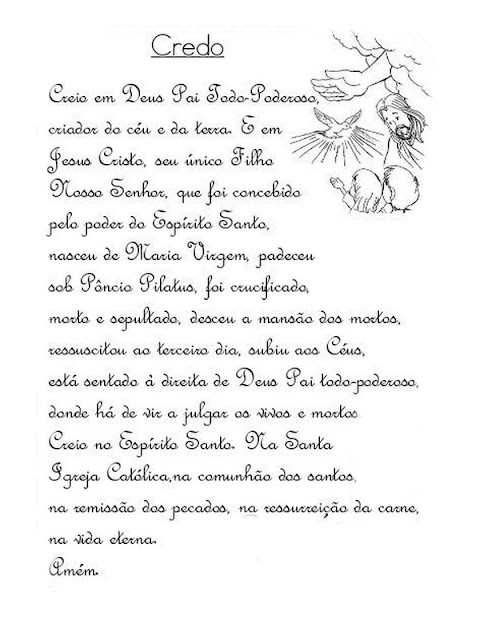 Credo
Creio em Deus Pai Todo-Poderoso,
criador do céu e da terra. E em
Jesus Cristo, seu único Filho
Nosso Senhor, que foi concebido
pelo poder do Espírito Santo,
nasceu de Maria Virgem, padeceu
sob Pôncio Pilatus, foi crucificado,
morto e sepultado, desceu a mansão dos mortos,
ressuscitou ao terceiro dia, subiu aos Céus,
está sentado à direita de Deus Pai todo-poderoso,
donde há de vir a julgar os vivos e mortos
Creio no Espírito Santo. Na Santa
Igreja Católica,na comunhão dos santos,
na remissão dos pecados, na ressurreição da carne,
na vida eterna.
Amém.